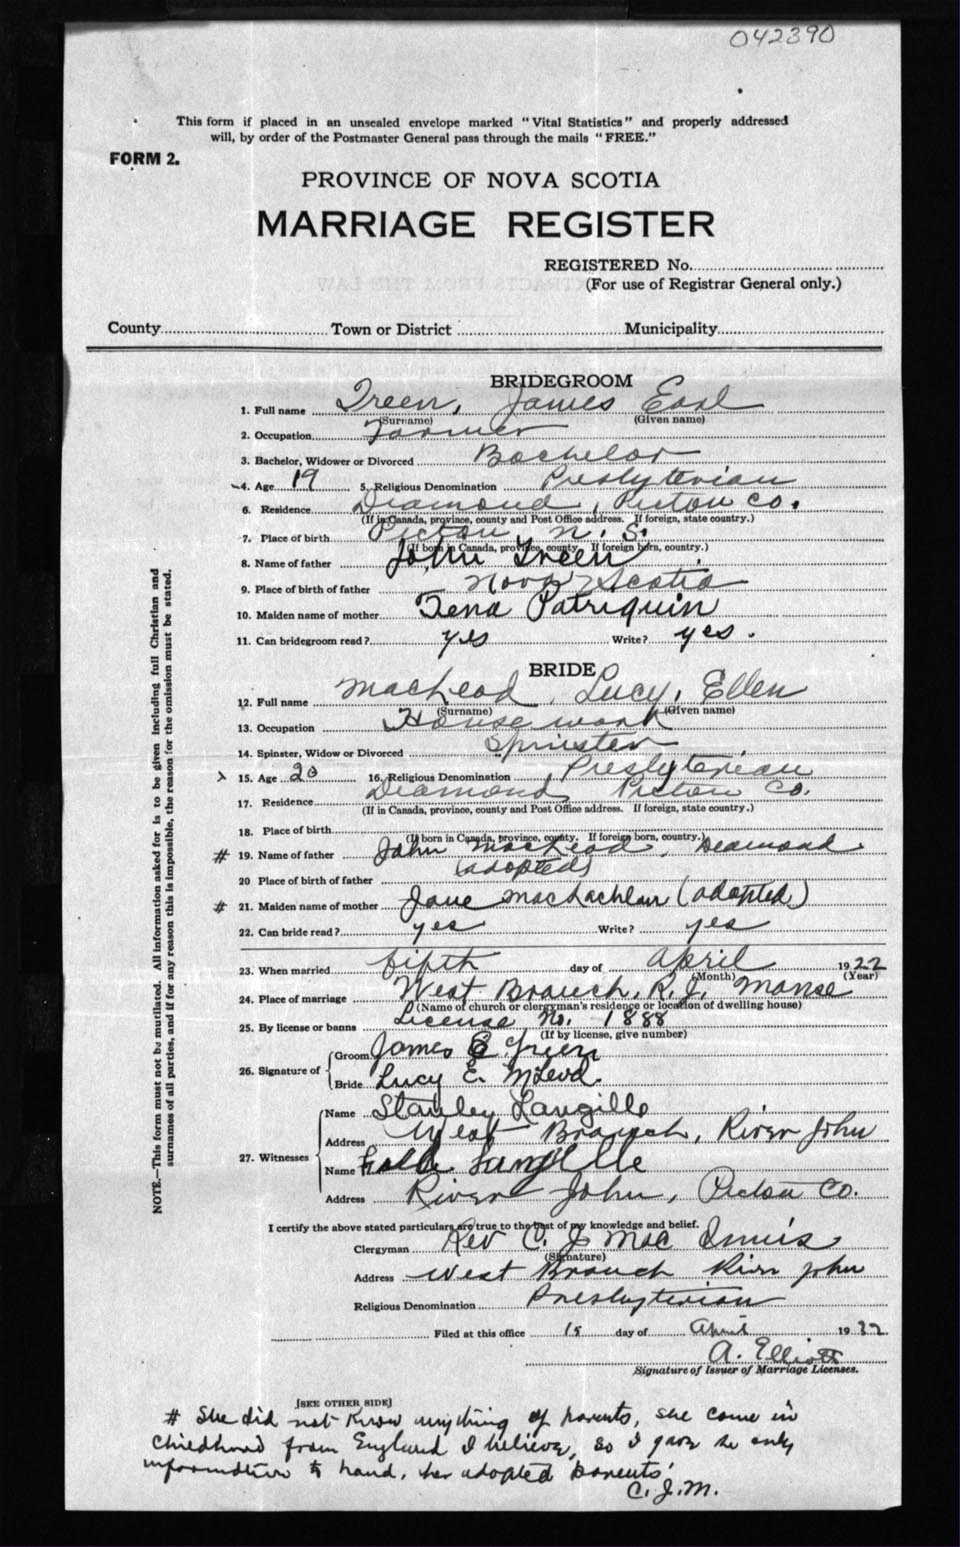 042390
This form if placed in an unsealed envelope marked "Vital Statistics" and properly addressed
will, by order of the Postmaster General pass through the mails "FREE."
FORM 2.
PROVINCE OF NOVA SCOTIA
MARRIAGE REGISTER
REGISTERED No.
(For use of Registrar General only.)
County Town or District Municipality
BRIDEGROOM
1. Full name Treen, James Earl
(Surname) (Given name)
2. Occupation Farmer
3. Bachelor, Widower or Divorced Bachelor
4. Age 19 5. Religious Denomination Presbyterian
6. Residence Diamond, Pictou Co.
(If in Canada, province, county and Post Office address. If foreign, state country.)
7. Place of birth Pictou N. S.
(If born in Canada, province, county. If foreign born, country.)
8. Name of father John Treen
9. Place of birth of father Nova Scotia
10. Maiden name of mother Tena Patriquin
11. Can bridegroom read? yes Write? yes.
BRIDE
12. Full name MacLeod, Lucy, Ellen
(Surname) (Given name)
13. Occupation House work
14. Spinster, Widow or Divorced Spinster
15. Age 20 16. Religious Denomination Presbyterian
17. Residence Diamond Pictou Co.
(If in Canada, province, county and Post Office address. If foreign, state country.)
18. Place of birth
(If born in Canada, province, county. If foreign born, country.)
# 19. Name of father John MacLeod, Diamond
(adopted)
20 Place of birth of father
# 21. Maiden name of mother Jane MacLachlan (adopted)
22. Can bride read? yes Write? yes
23. When married fifth day of April 1922
(Month) (Year)
24. Place of marriage West Branch, R. J. Manse
(Name of church or clergyman's residence or location of dwelling house)
25. By license or banns License No. 1888
(If by license, give number)
26. Signature of
Groom James E Treen
Bride Lucy E. McLeod.
27. Witnesses
Name Stanley Langille
Address West Branch, River John
Name Langille
Address River John, Pictou Co.
I certify the above stated particulars are true to the best of my knowledge and belief.
Clergyman Rev C. J. MacInnis
(Signature)
Address West Branch River John
Religious Denomination Presbyterian
Filed at this office 15 day of April 1922.
A. Elliott
Signature of Issuer of Marriage Licenses.
[SEE OTHER SIDE]
# She did not know anything of parents, she came in
childhood from England I believe, so I gave the only
information to hand, her adopted parents'
C. J. M.
NOTE.—This form must not be mutilated. All information asked for is to be given including full Christian and
surnames of all parties, and if for any reason this is impossible, the reason for the omission must be stated.